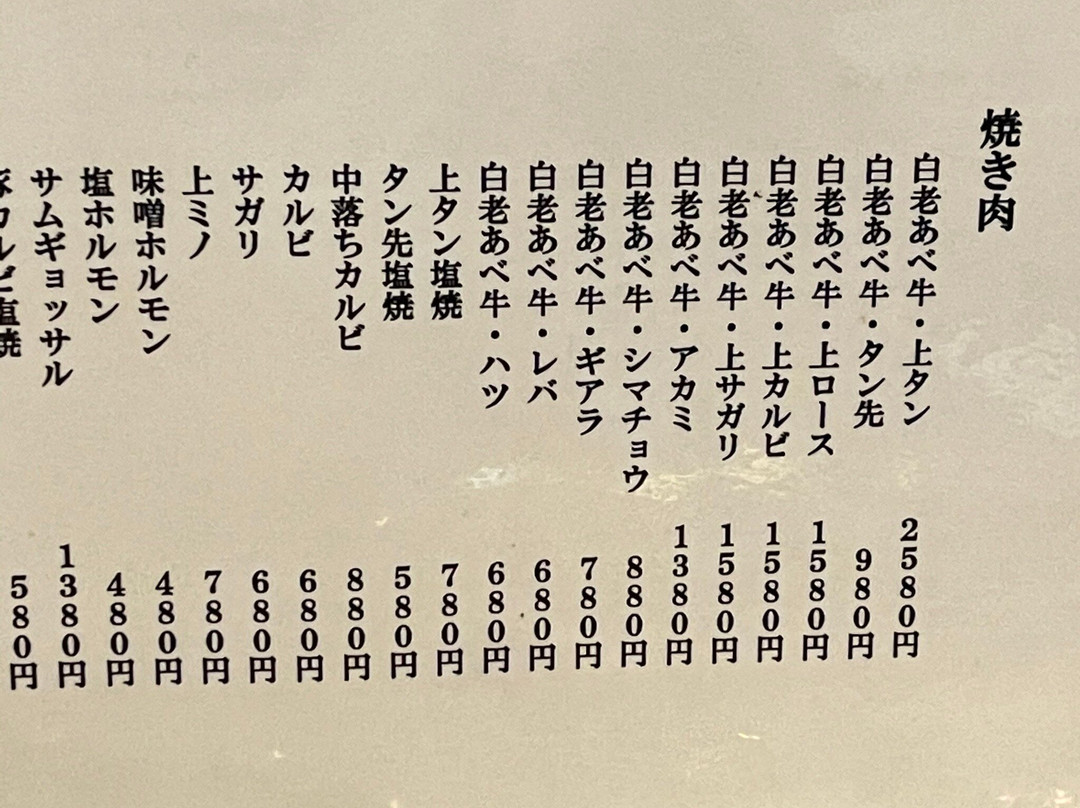 焼き肉
白老あべ牛・上タン 2580円
白老あべ牛・タン先 980円
白老あべ牛・上ロース 1580円
白老あべ牛・上カルビ 1580円
白老あべ牛・上サガリ 1580円
白老あべ牛・アカミ 1380円
白老あべ牛・シマチョウ 880円
白老あべ牛・ギアラ 780円
白老あべ牛・レバ 680円
白老あべ牛・ハツ 680円
上タン塩焼 780円
タン先塩焼 580円
中落ちカルビ 880円
カルビ 680円
サガリ 680円
上ミノ 780円
味噌ホルモン 480円
塩ホルモン 480円
サムギョッサル 1380円
豚カルビ塩焼 580円